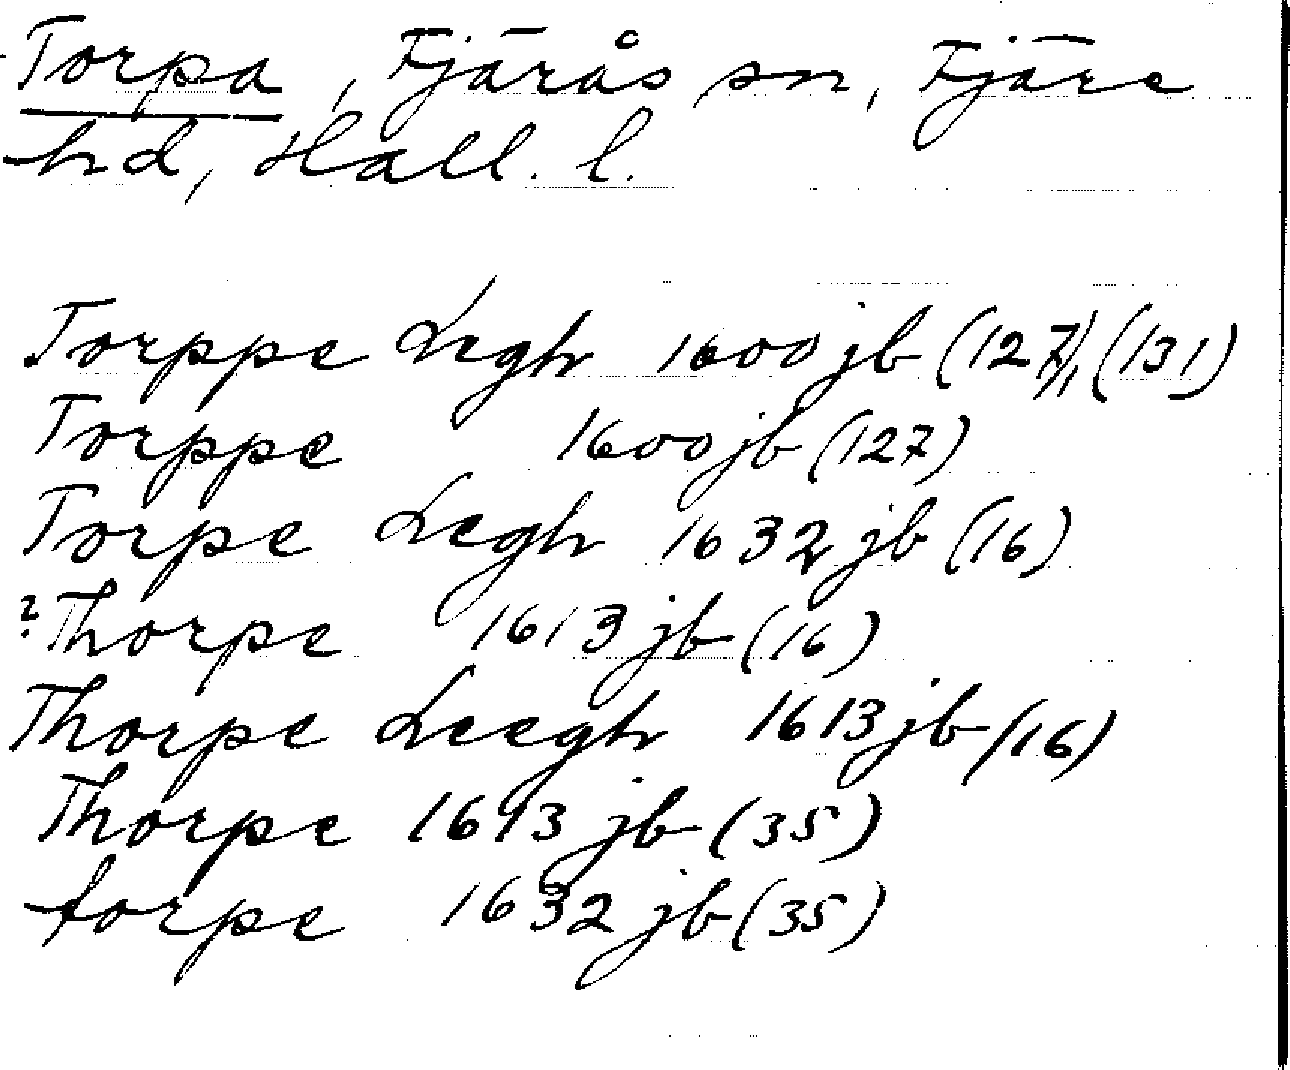 Torpa, Fjärås sn, Fjäre
hd, Hall. l.
Torppe Legh 1600 jb (127), (131)
Torppe 1600 jb (127)
Torpe Legh 1632 jb (16)
? Thorpe 1613 jb (16)
Thorpe Leegh 1613 jb (16)
Thorpe 1613 jb (35)
torpe 1632 jb (35)